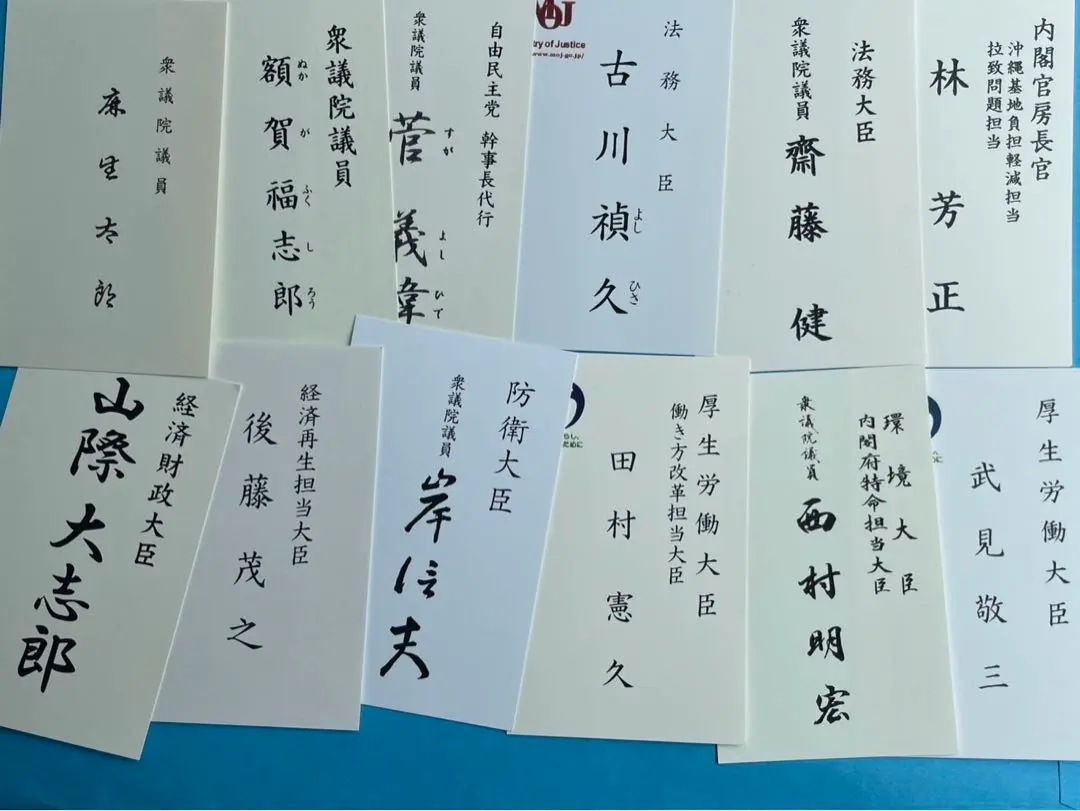 内閣官房長官
沖縄基地負担軽減担当
拉致問題担当
林 芳正
法務大臣
衆議院議員
齋藤 健
MOJ
try of Justice
www.moj.go.jp/
法務大臣
古川禎久
よし
ひさ
自由民主党 幹事長代行
衆議院議員
菅 義偉
すが
よし
ひで
衆議院議員
額賀福志郎
ぬか
が
ふく
し
ろう
衆議院議員
麻生太郎
厚生労働大臣
武見敬三
環境大臣
内閣府特命担当大臣
衆議院議員
西村明宏
厚生労働大臣
働き方改革担当大臣
田村憲久
らし、
ために
防衛大臣
衆議院議員
岸信夫
経済再生担当大臣
後藤茂之
経済財政大臣
山際大志郎